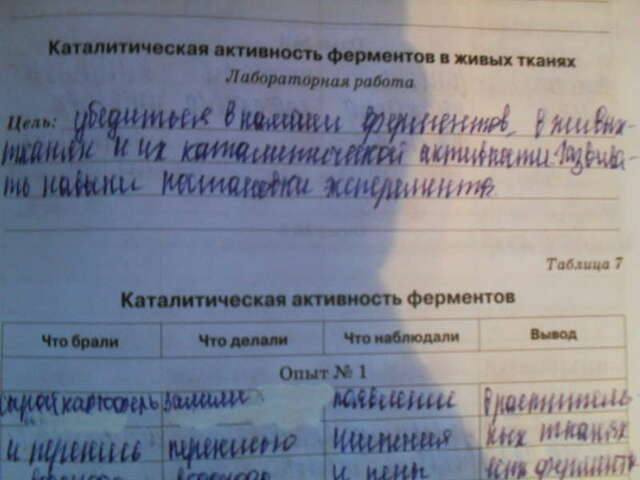 Каталитическая активность ферментов в живых тканях
Лабораторная работа
Цель: убедиться в наличии ферментов в живых
тканях и их каталитической активности. Развива-
ть навыки постановки эксперемента.
Таблица 7
Каталитическая активность ферментов
Что брали Что делали Что наблюдали Вывод
Опыт № 1
сырой картофель залили появление в раститель
и перекись перекисью шипения ных тканях
водорода водорода и пены есть ферменты